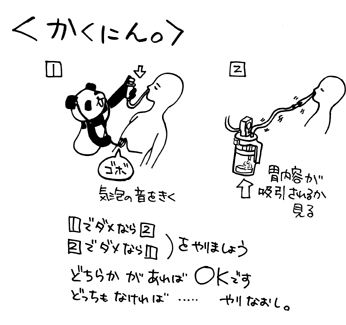 <かくにん。>
1
2
ゴボ
気泡の音をきく
胃内容が
吸引されるか
見る
1でダメなら2
2でダメなら1
をやりましょう
どちらかがあればOKです
どっちもなければ…… やりなおし。